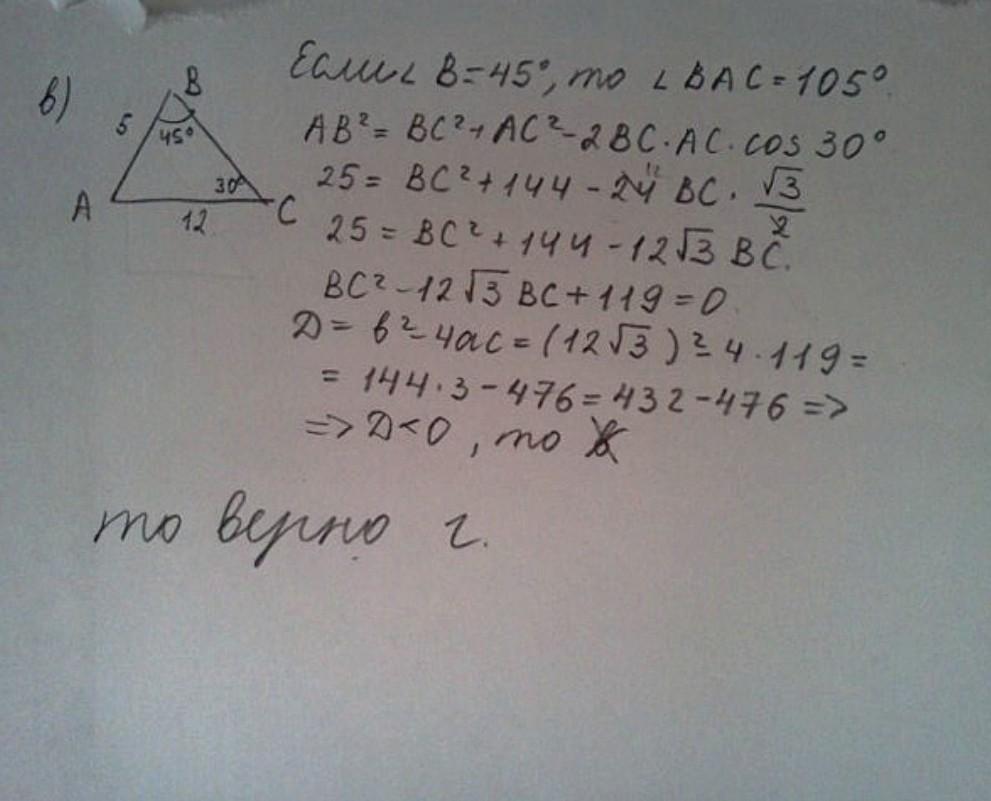 в)
B
5
45°
30°
A
12
C
Если ∠ B=45°, то ∠ BAC = 105°.
AB² = BC² + AC² - 2BC · AC · cos 30°
25 = BC² + 144 - 24 BC · √3/2
12
25 = BC² + 144 - 12√3 BC.
BC² - 12√3 BC + 119 = 0
D = b² - 4ac = (12√3)² - 4 · 119 =
= 144 · 3 - 476 = 432 - 476 =>
=> D < 0, то
то верно г.